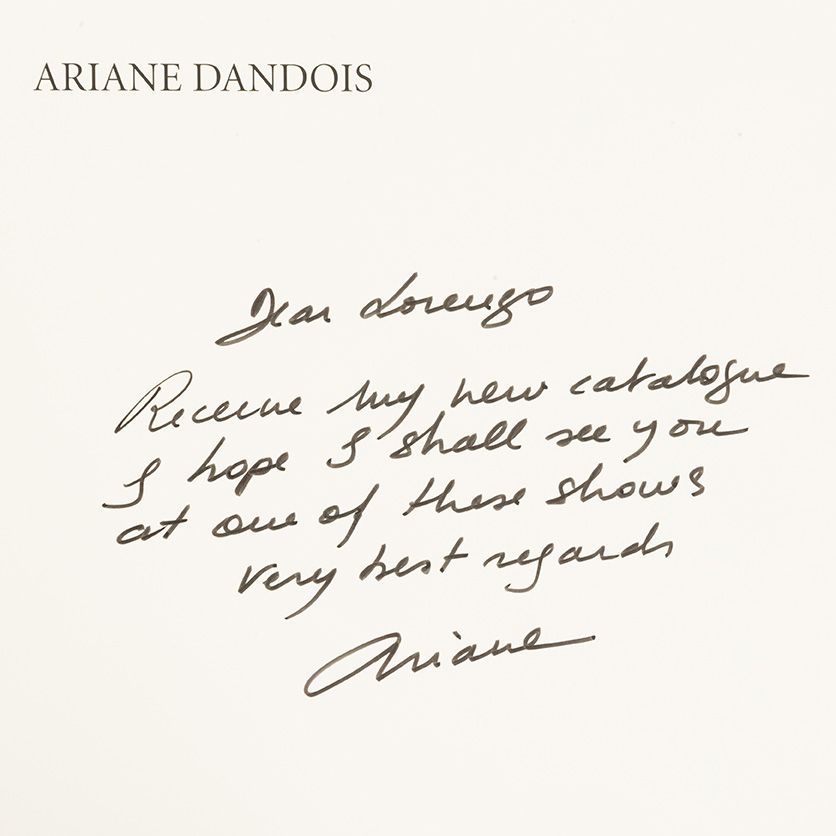 ARIANE DANDOIS
Dear Lorenzo
Receive my new catalogue
I hope I shall see you
at one of these shows
Very best regards
Ariane